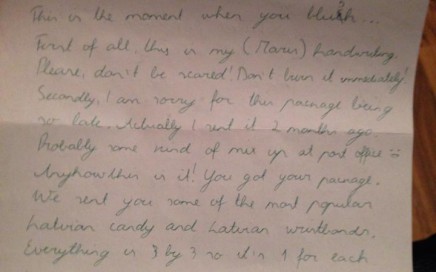 This is the moment when you blush...
First of all, this is my (Maris) handwriting.
Please, don't be scared! Don't burn it immediately!
Secondly, I am sorry for this package being
so late. Actually I sent it 2 months ago
Probably some kind of mix up at post office :)
Anyhow this is it! You got your package.
We sent you some of the most popular
Latvian candy and Latvian wristbands.
Everything is 3 by 3 so it is 1 for each